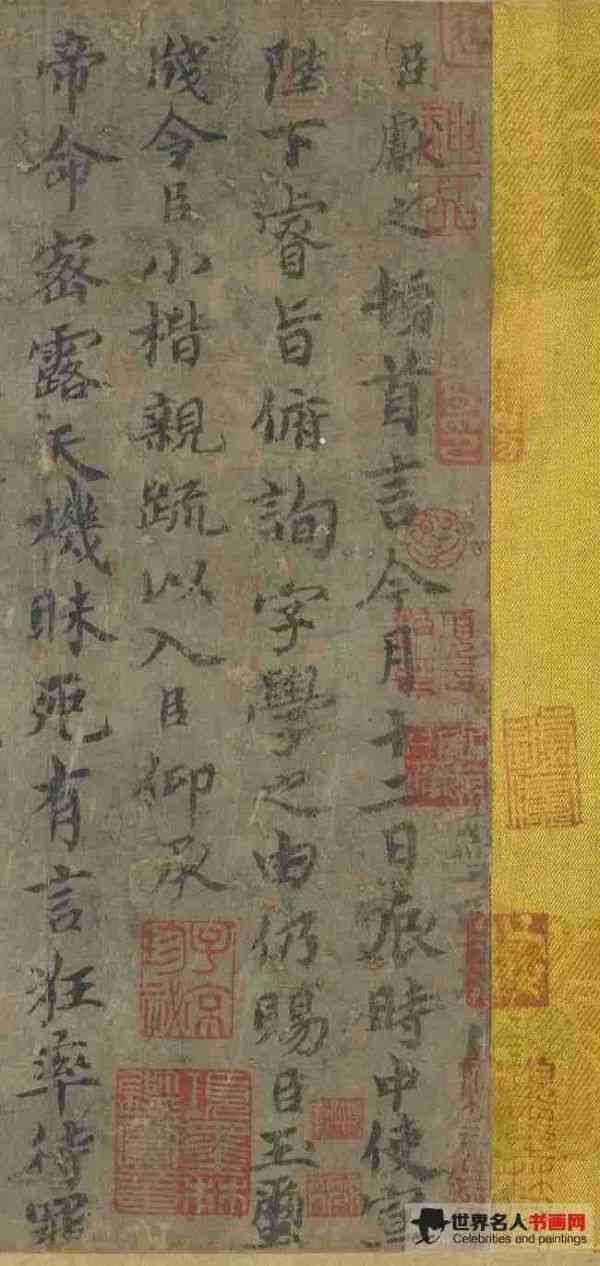 臣獻之稽首言今月十二日辰時中使宣
陛下睿旨俯詢字學之由仍賜臣玉璽
牋令臣小楷親疏以入臣仰承
帝命密露天機昧死有言狂率待罪
神品
子京珍秘
項墨林鑑賞章
世界名人书画网
Celebrities and paintings